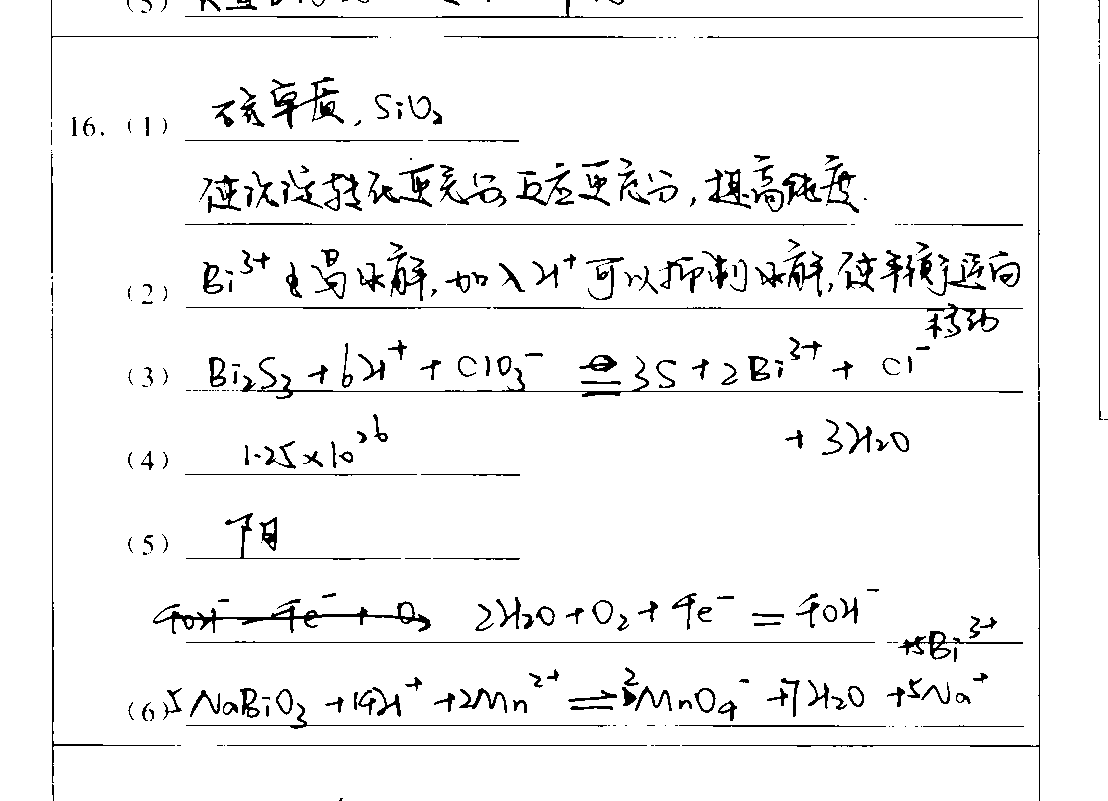 16. (1) 硫单质, SiO₂
反应更充分, 提高纯度.
(2) Bi³⁺易水解, 加入H⁺可以抑制水解, 使平衡逆向
移动
(3) Bi₂S₃ + 6H⁺ + ClO₃⁻ = 3S + 2Bi³⁺ + Cl⁻
+ 3H₂O
(4) 1.25×10²⁶
(5) 阳
2H₂O + O₂ + 4e⁻ = 4OH⁻
+5Bi³⁺
(6) 5NaBiO₃ + 14H⁺ + 2Mn²⁺ = 2MnO₄⁻ + 7H₂O + 5Na⁺